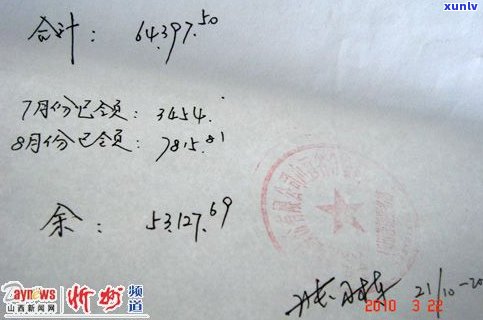 xunlv
合计: 64397.50
7月份已领: 3454.
8月份已领: 7815.81
余: 53,127.69
21/10-20
2010 3 22
Daynews
山西新闻网
忻州
频道